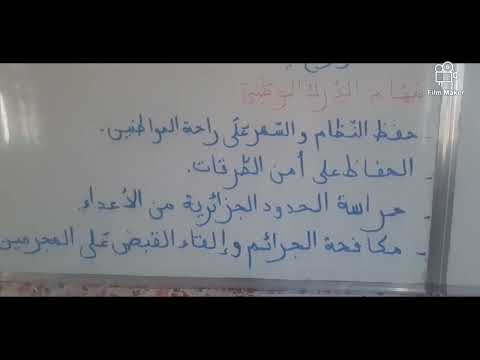 مهام الدرك الوطني
- حفظ النّظام والسّهر على راحة المواطنين.
- الحفاظ على أمن الطّرقات.
- حراسة الحدود الجزائرية من الأعداء
- مكافحة الجرائم وإلقاء القبض على المجرمين
Film Maker